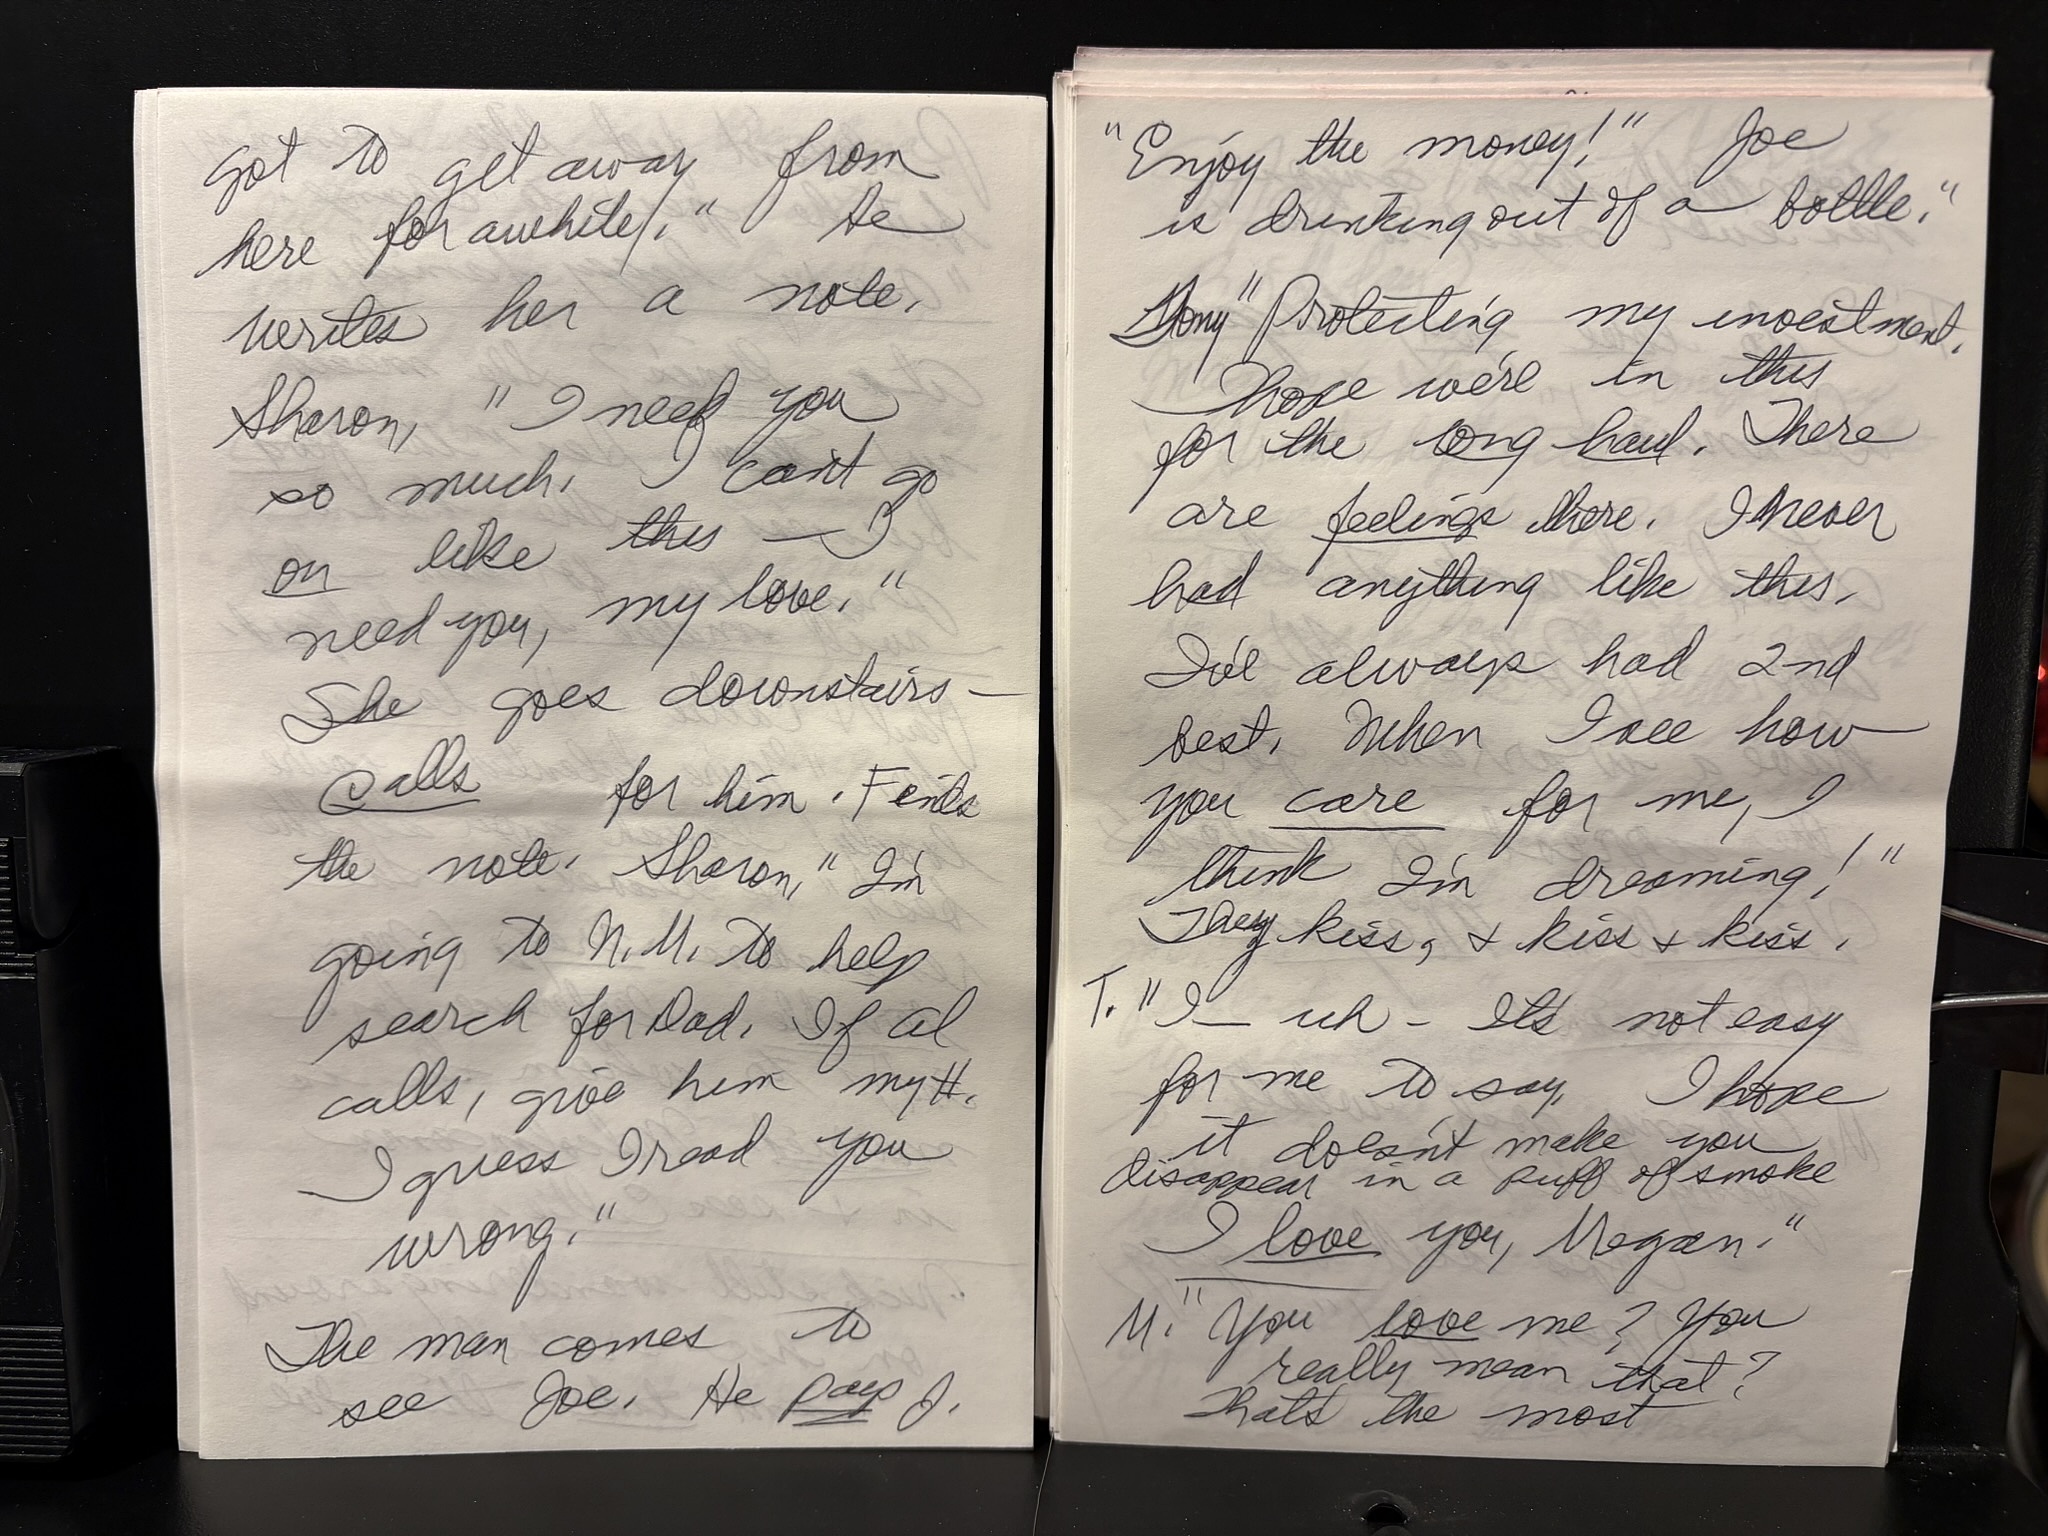 got to get away from
here for awhile." He
writes her a note.
Sharon, "I need you
so much. I can't go
on like this — I
need you, my love."
She goes downstairs —
Calls for him. Finds
the note. Sharon, "I'm
going to N.M. to help
search for Dad. If Al
calls, give him my #.
I guess I read you
wrong."
The man comes to
see Joe. He pays J.
"Enjoy the money!" Joe
is drinking out of a bottle."
Tony "Protecting my investment.
I hope we're in this
for the long haul. There
are feelings there. I never
had anything like this.
I've always had 2nd
best. When I see how
you care for me, I
think I'm dreaming!"
They kiss, & kiss & kiss.
T. "I — uh - It's not easy
for me to say. I hope
it doesn't make you
disappear in a puff of smoke
I love you, Megan."
M. "You love me? You
really mean that?
That's the most